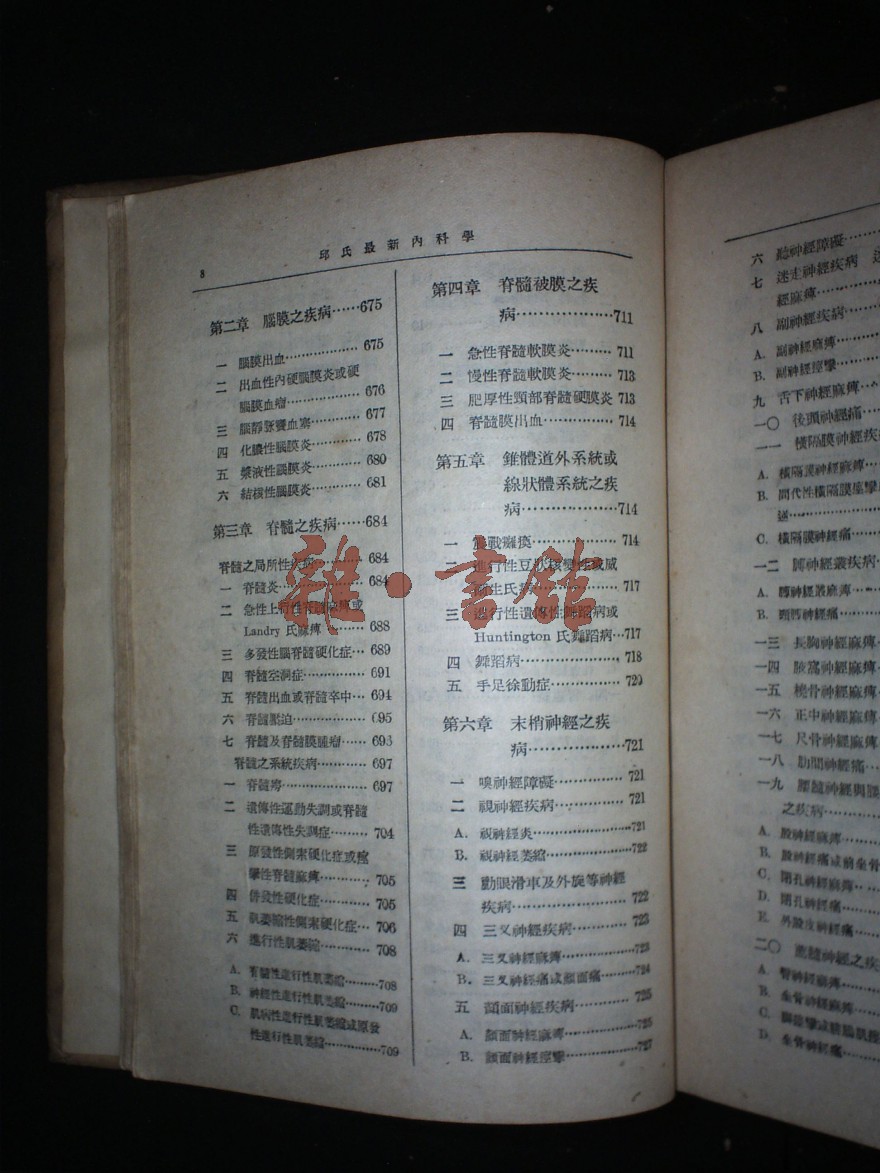 8
邱氏最新內科學
第二章 腦膜之疾病……675
一 腦膜出血……………… 675
二 出血性內硬腦膜炎或硬
腦膜血瘤…………… 676
三 腦靜脈竇血塞………… 677
四 化膿性腦膜炎………… 678
五 漿液性腦膜炎………… 680
六 結核性腦膜炎………… 681
第三章 脊髓之疾病……684
脊髓之局所性疾病………… 684
一 脊髓炎……………… 684
二 急性上行性脊髓麻痺或
Landry 氏麻痺……… 688
三 多發性腦脊髓硬化症… 689
四 脊髓空洞症………… 691
五 脊髓出血或脊髓卒中… 694
六 脊髓壓迫…………… 695
七 脊髓及脊髓膜腫瘤…… 693
脊髓之系統疾病………… 697
一 脊髓癆……………… 697
二 遺傳性運動失調或脊髓
性遺傳性失調症……… 704
三 原發性側索硬化症或痙
攣性脊髓麻痺………… 705
四 併發性硬化症………… 705
五 肌萎縮性側索硬化症… 706
六 進行性肌萎縮………… 708
A. 脊髓性進行性肌萎縮………708
B. 神經性進行性肌萎縮………709
C. 肌病性進行性肌萎縮或原發
性進行性肌萎縮……………709
第四章 脊髓被膜之疾
病………………711
一 急性脊髓軟膜炎……… 711
二 慢性脊髓軟膜炎……… 713
三 肥厚性頸部脊髓硬膜炎 713
四 脊髓膜出血………… 714
第五章 錐體道外系統或
線狀體系統之疾
病………………714
一 震戰癱瘓…………… 714
二 進行性豆狀核變性或威
爾生氏病…………… 717
三 進行性遺傳性舞蹈病或
Huntington 氏舞蹈病…717
四 舞蹈病……………… 718
五 手足徐動症………… 720
第六章 末梢神經之疾
病………………721
一 嗅神經障礙………… 721
二 視神經疾病………… 721
A. 視神經炎………………721
B. 視神經萎縮……………722
三 動眼滑車及外旋等神經
疾病………………… 722
四 三叉神經疾病……… 723
A. 三叉神經麻痺…………723
B. 三叉神經痛或顏面痛……724
五 顏面神經疾病……… 725
A. 顏面神經麻痺…………725
B. 顏面神經痙攣…………727
六 聽神經障礙……
七 迷走神經疾病
經麻痺………
八 副神經疾病……
A. 副神經麻痺……
B. 副神經痙攣……
九 舌下神經麻痺……
一〇 後頭神經痛……
一一 橫隔膜神經疾
A. 橫隔膜神經麻痺……
B. 間代性橫隔膜痙攣
C. 橫隔膜神經痛……
一二 膊神經叢疾病……
A. 膊神經叢麻痺……
B. 頸膊神經痛……
一三 長胸神經麻痺……
一四 腋窩神經麻痺……
一五 橈骨神經麻痺……
一六 正中神經麻痺……
一七 尺骨神經麻痺……
一八 肋間神經痛……
一九 腰髓神經與
之疾病……
A. 股神經麻痺……
B. 股神經痛或前坐骨
C. 閉孔神經麻痺……
D. 閉孔神經痛……
E. 外股皮神經痛……
二〇 薦髓神經之疾
A. 臀神經麻痺……
B. 坐骨神經麻痺……
D. 坐骨神經痛……
雜·書館